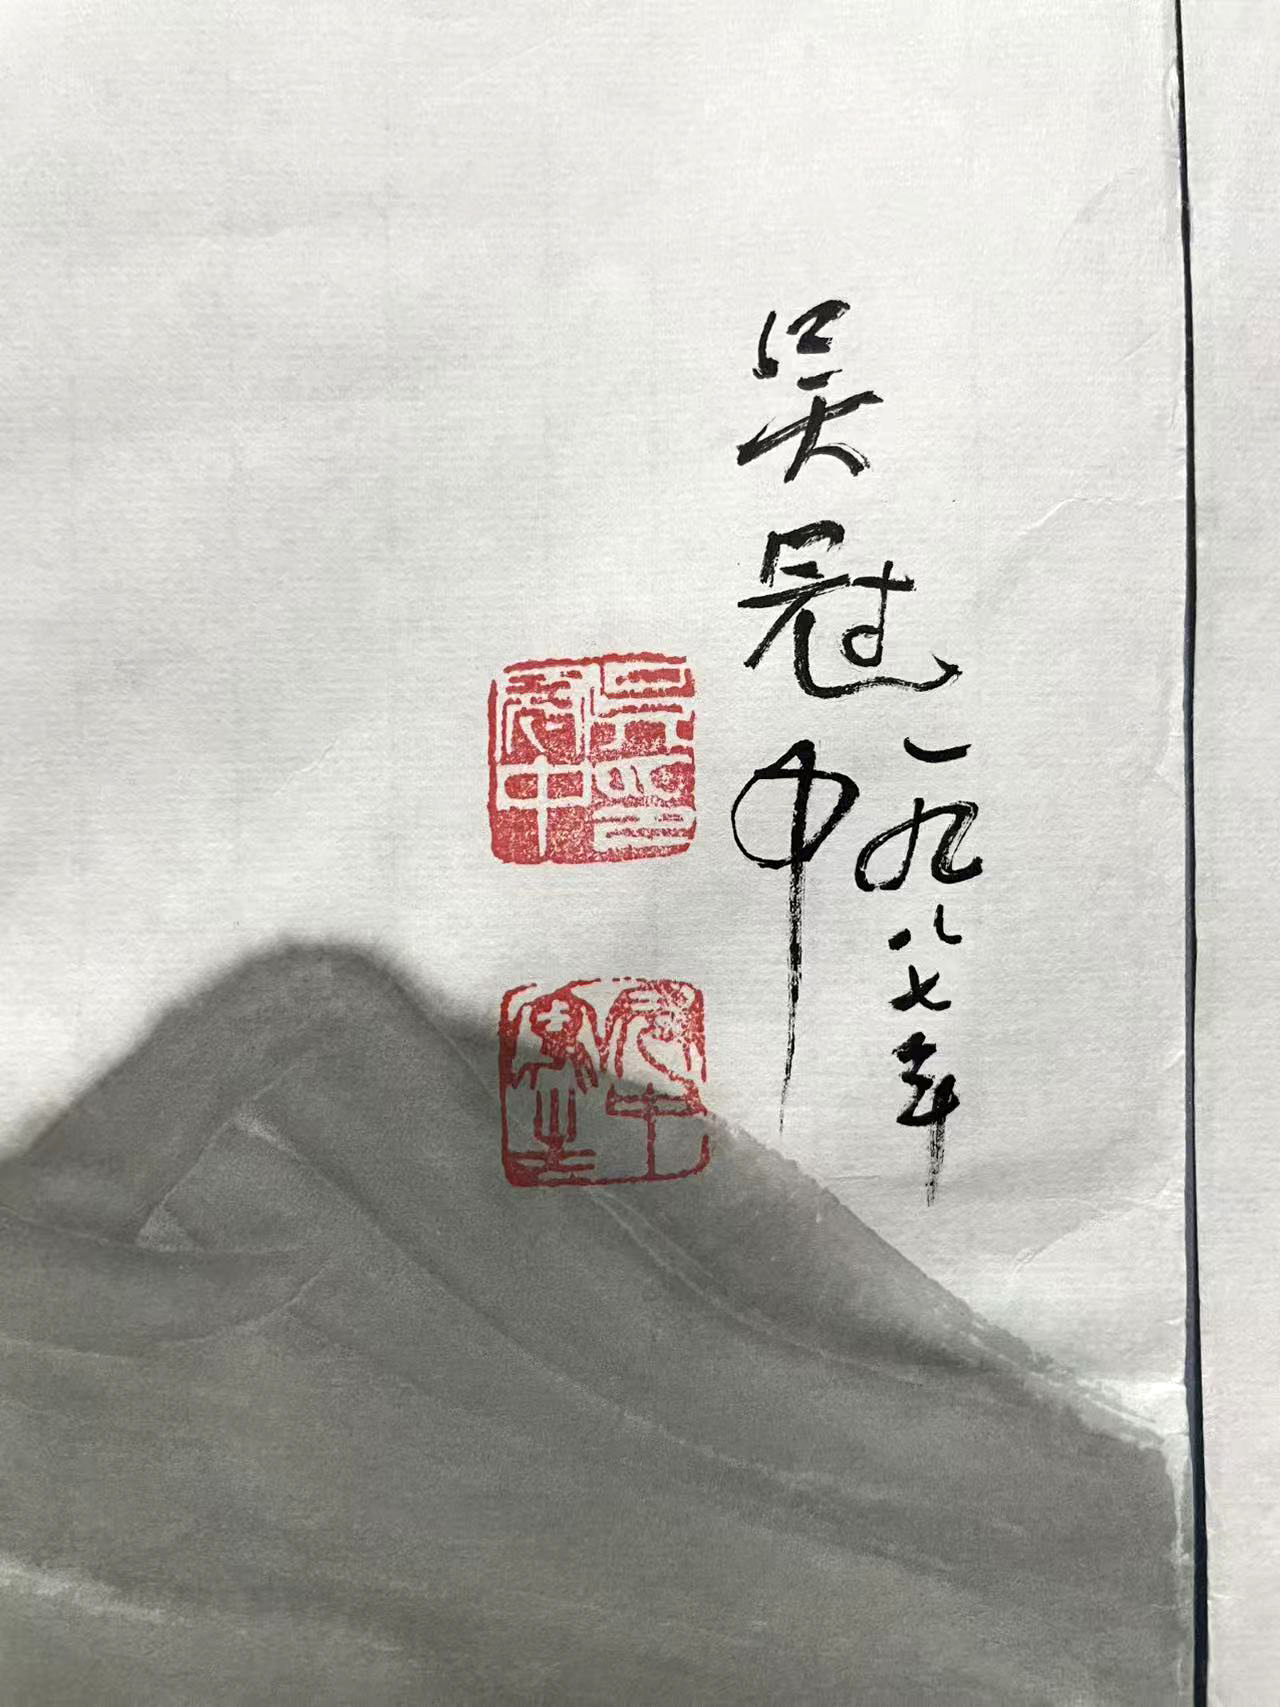 吴冠中
一九八七年
吴印冠中